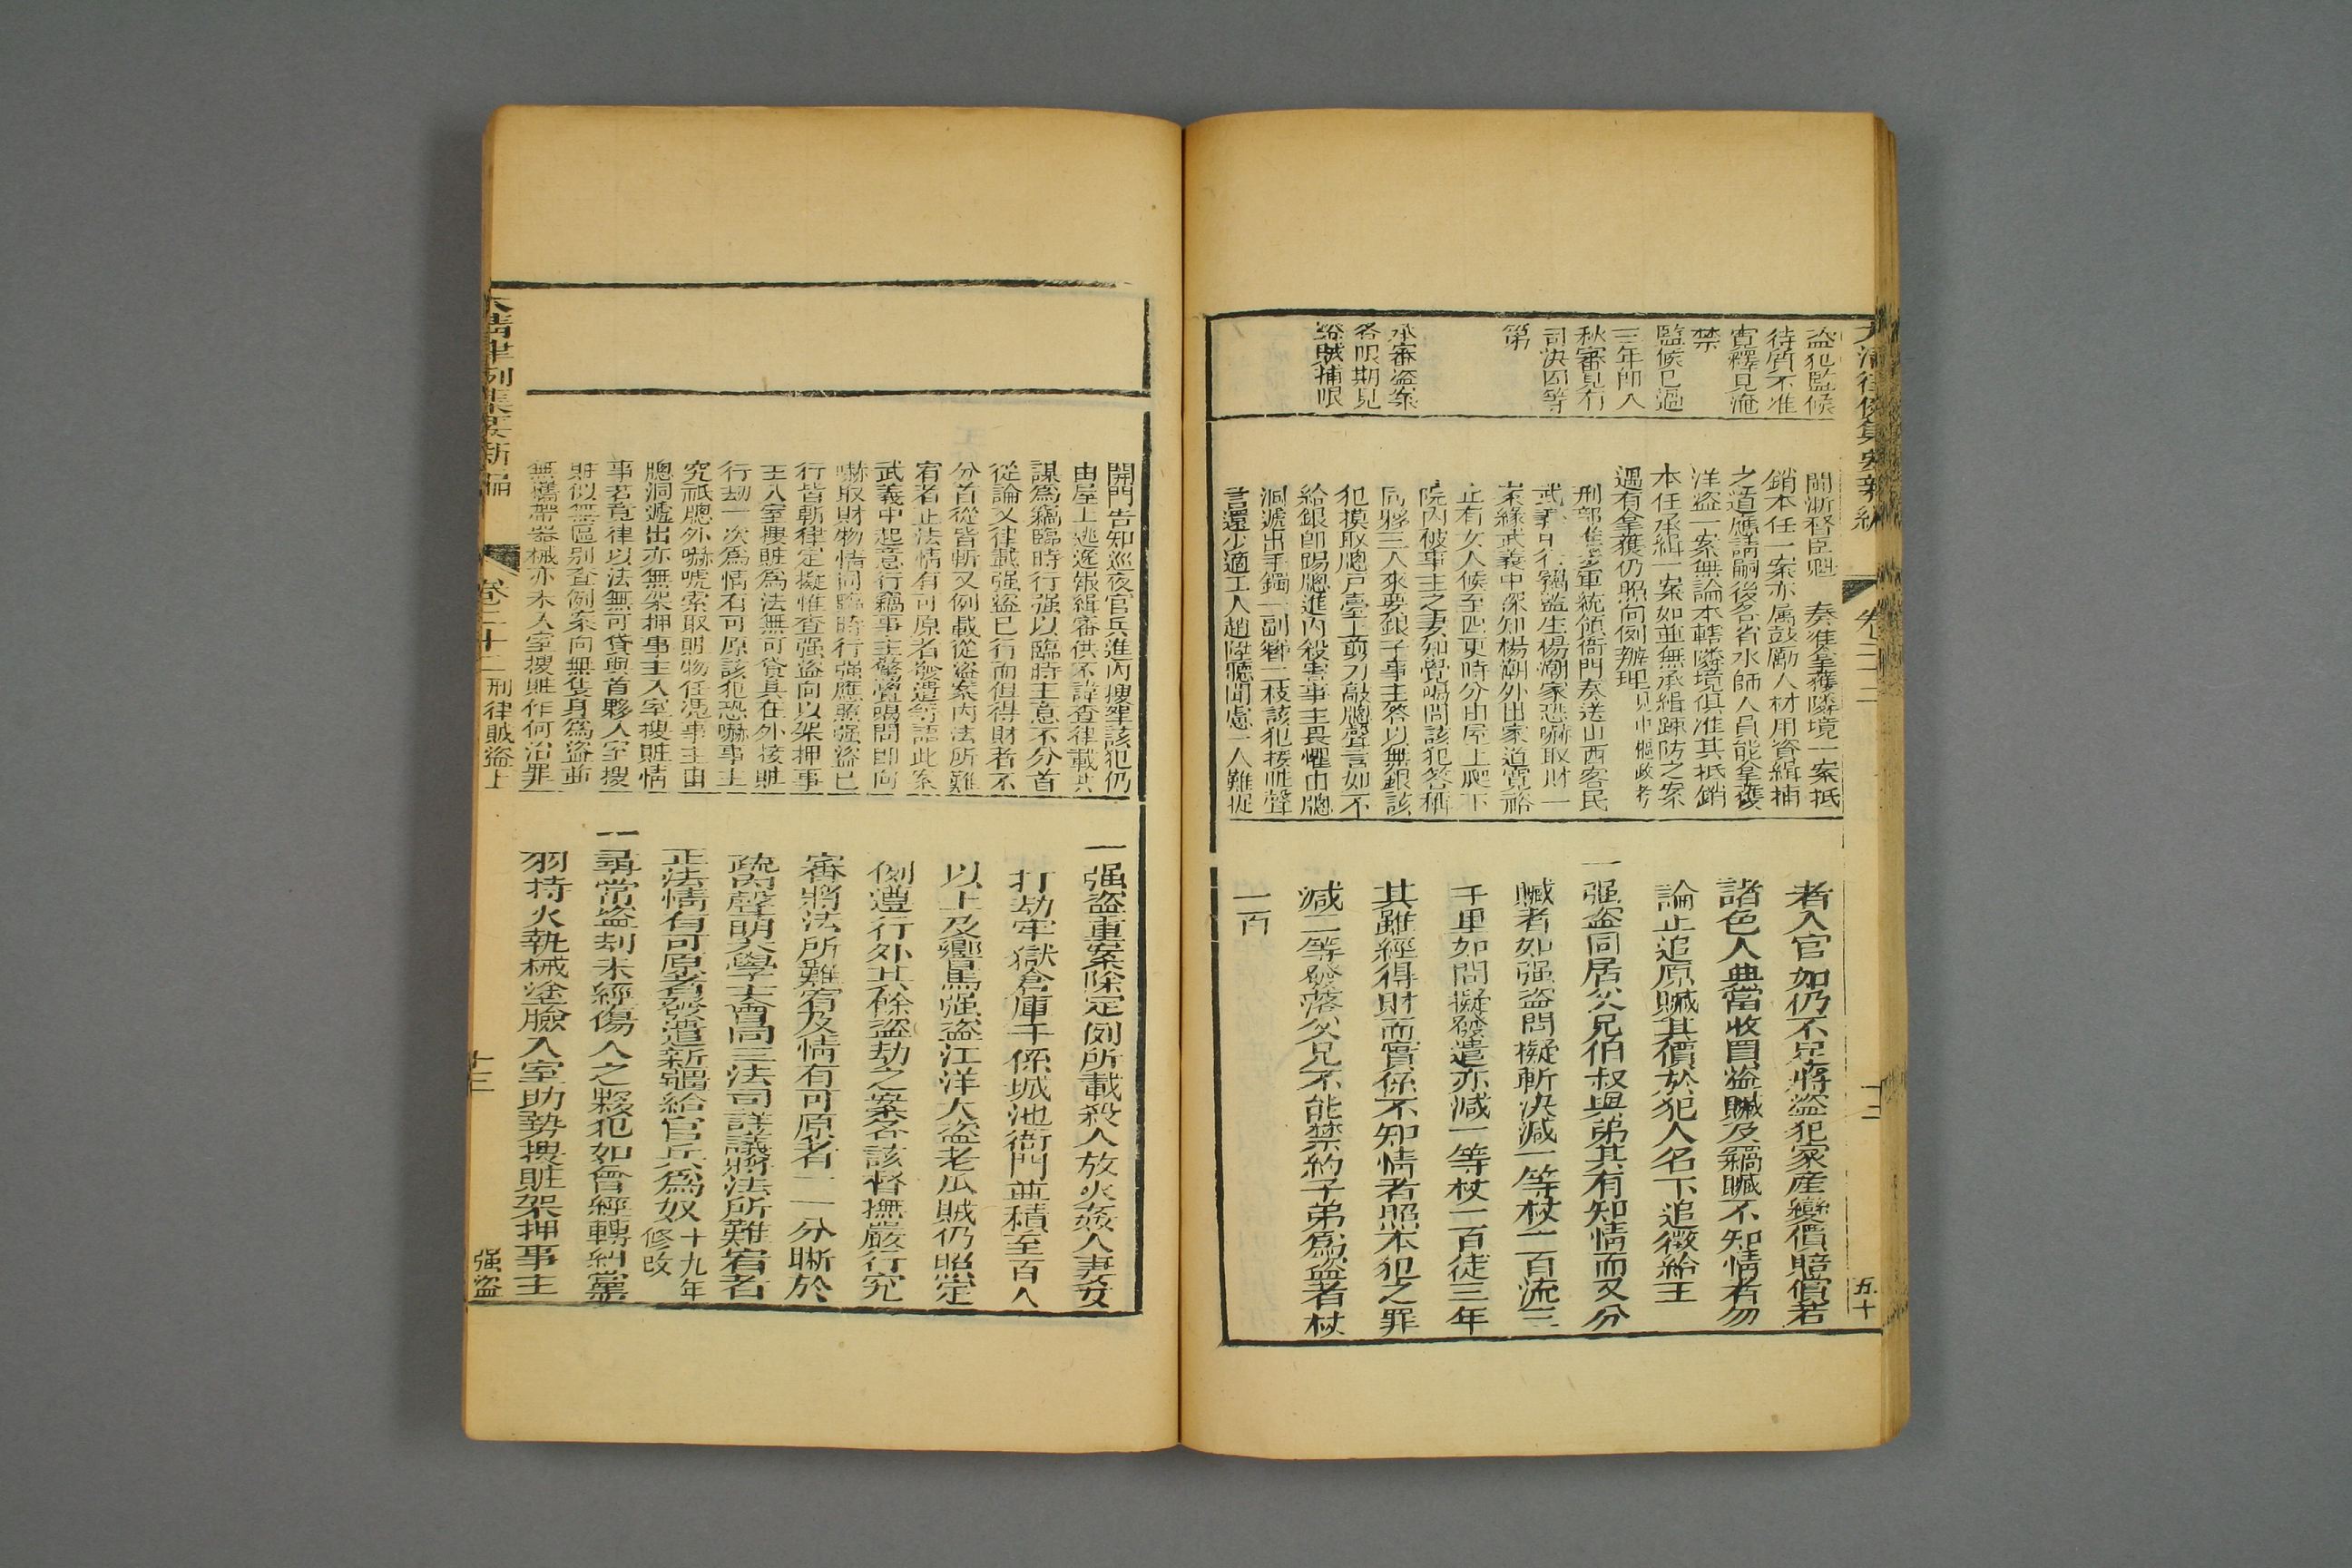 盜犯監候
待質不准
寬釋見淹
禁
監候已過
三年卽入
秋審見有
司決囚等
第
承審盜案
各限期見
盜賊捕限
閩浙督臣魁　奏准拿獲隣境一案抵
銷本任一案亦属鼓勵人材用資緝捕
之道應請嗣後各省水師人員能拿獲
洋盜一案無論本轄隣境俱准其抵銷
本任承緝一案如並無承緝疎防之案
遇有拿獲仍照向例辦理見中樞政考
刑部准步軍統領衙門奏送山西客民
武義中行竊監生楊潮家恐嚇取財一
案緣武義中深知楊潮外出家道寬裕
止有女人候至四更時分由屋上爬下
院內被事主之妻知覺喝問該犯答稱
同夥三人來要銀子事主答以無銀該
犯摸取牕戶臺上剪刀敲牕聲言如不
給銀卽踢牕進內殺害事主畏懼由牕
洞遞出手鐲一副簪二枝該犯接贓聲
言還少適工人趙陞聽聞慮一人難捉
者入官如仍不足將盜犯家產變價賠償若
諸色人典當收買盜贓及竊贓不知情者勿
論止追原贓其價於犯人名下追徵給主
一强盜同居父兄伯叔與弟其有知情而又分
贓者如强盜問擬斬決減一等杖一百流三
千里如問擬發遣亦減一等杖一百徒三年
其雖經得財而實係不知情者照本犯之罪
減二等發落父兄不能禁約子弟為盜者杖
一百
大清律例集要新編　卷二十二
十二
五十
開門告知巡夜官兵進內搜拏該犯仍
由屋上逃逸報緝審供不諱查律載共
謀為竊臨時行强以臨時主意不分首
從論又律載强盜已行而但得財者不
分首從皆斬又例載從盜案內法所難
宥者正法情有可原者發遣等語此案
武義中起意行竊事主驚覺喝問卽向
嚇取財物情同臨時行强應照强盜已
行皆斬律定擬惟查强盜向以架押事
主入室搜贓為法無可貸其在外接贓
行刼一次為情有可原該犯恐嚇事主
究祇牕外嚇唬索取財物任憑事主由
牕洞遞出亦無架押事主入室搜贓情
事若竟律以法無可貸與首夥入室搜
贓似無區別查例案向無隻身為盜並
無攜帶器械亦未入室搜贓作何治罪
一强盜重案除定例所載殺人放火姦人妻女
打劫牢獄倉庫干係城池衙門並積至百人
以上及嚮馬强盜江洋大盜老瓜賊仍照定
例遵行外其餘盜劫之案各該督撫嚴行究
審將法所難宥及情有可原者一一分晰於
疏內聲明大學士會同三法司詳議將法所難宥者
正法情有可原者發遣新疆給官兵為奴十九年修改
一尋常盜刦未經傷人之夥犯如曾經轉糾黨
羽持火執械塗臉入室助勢搜贓架押事主
大清律例集要新編　卷二十二　刑律賊盜上
十三
强盜